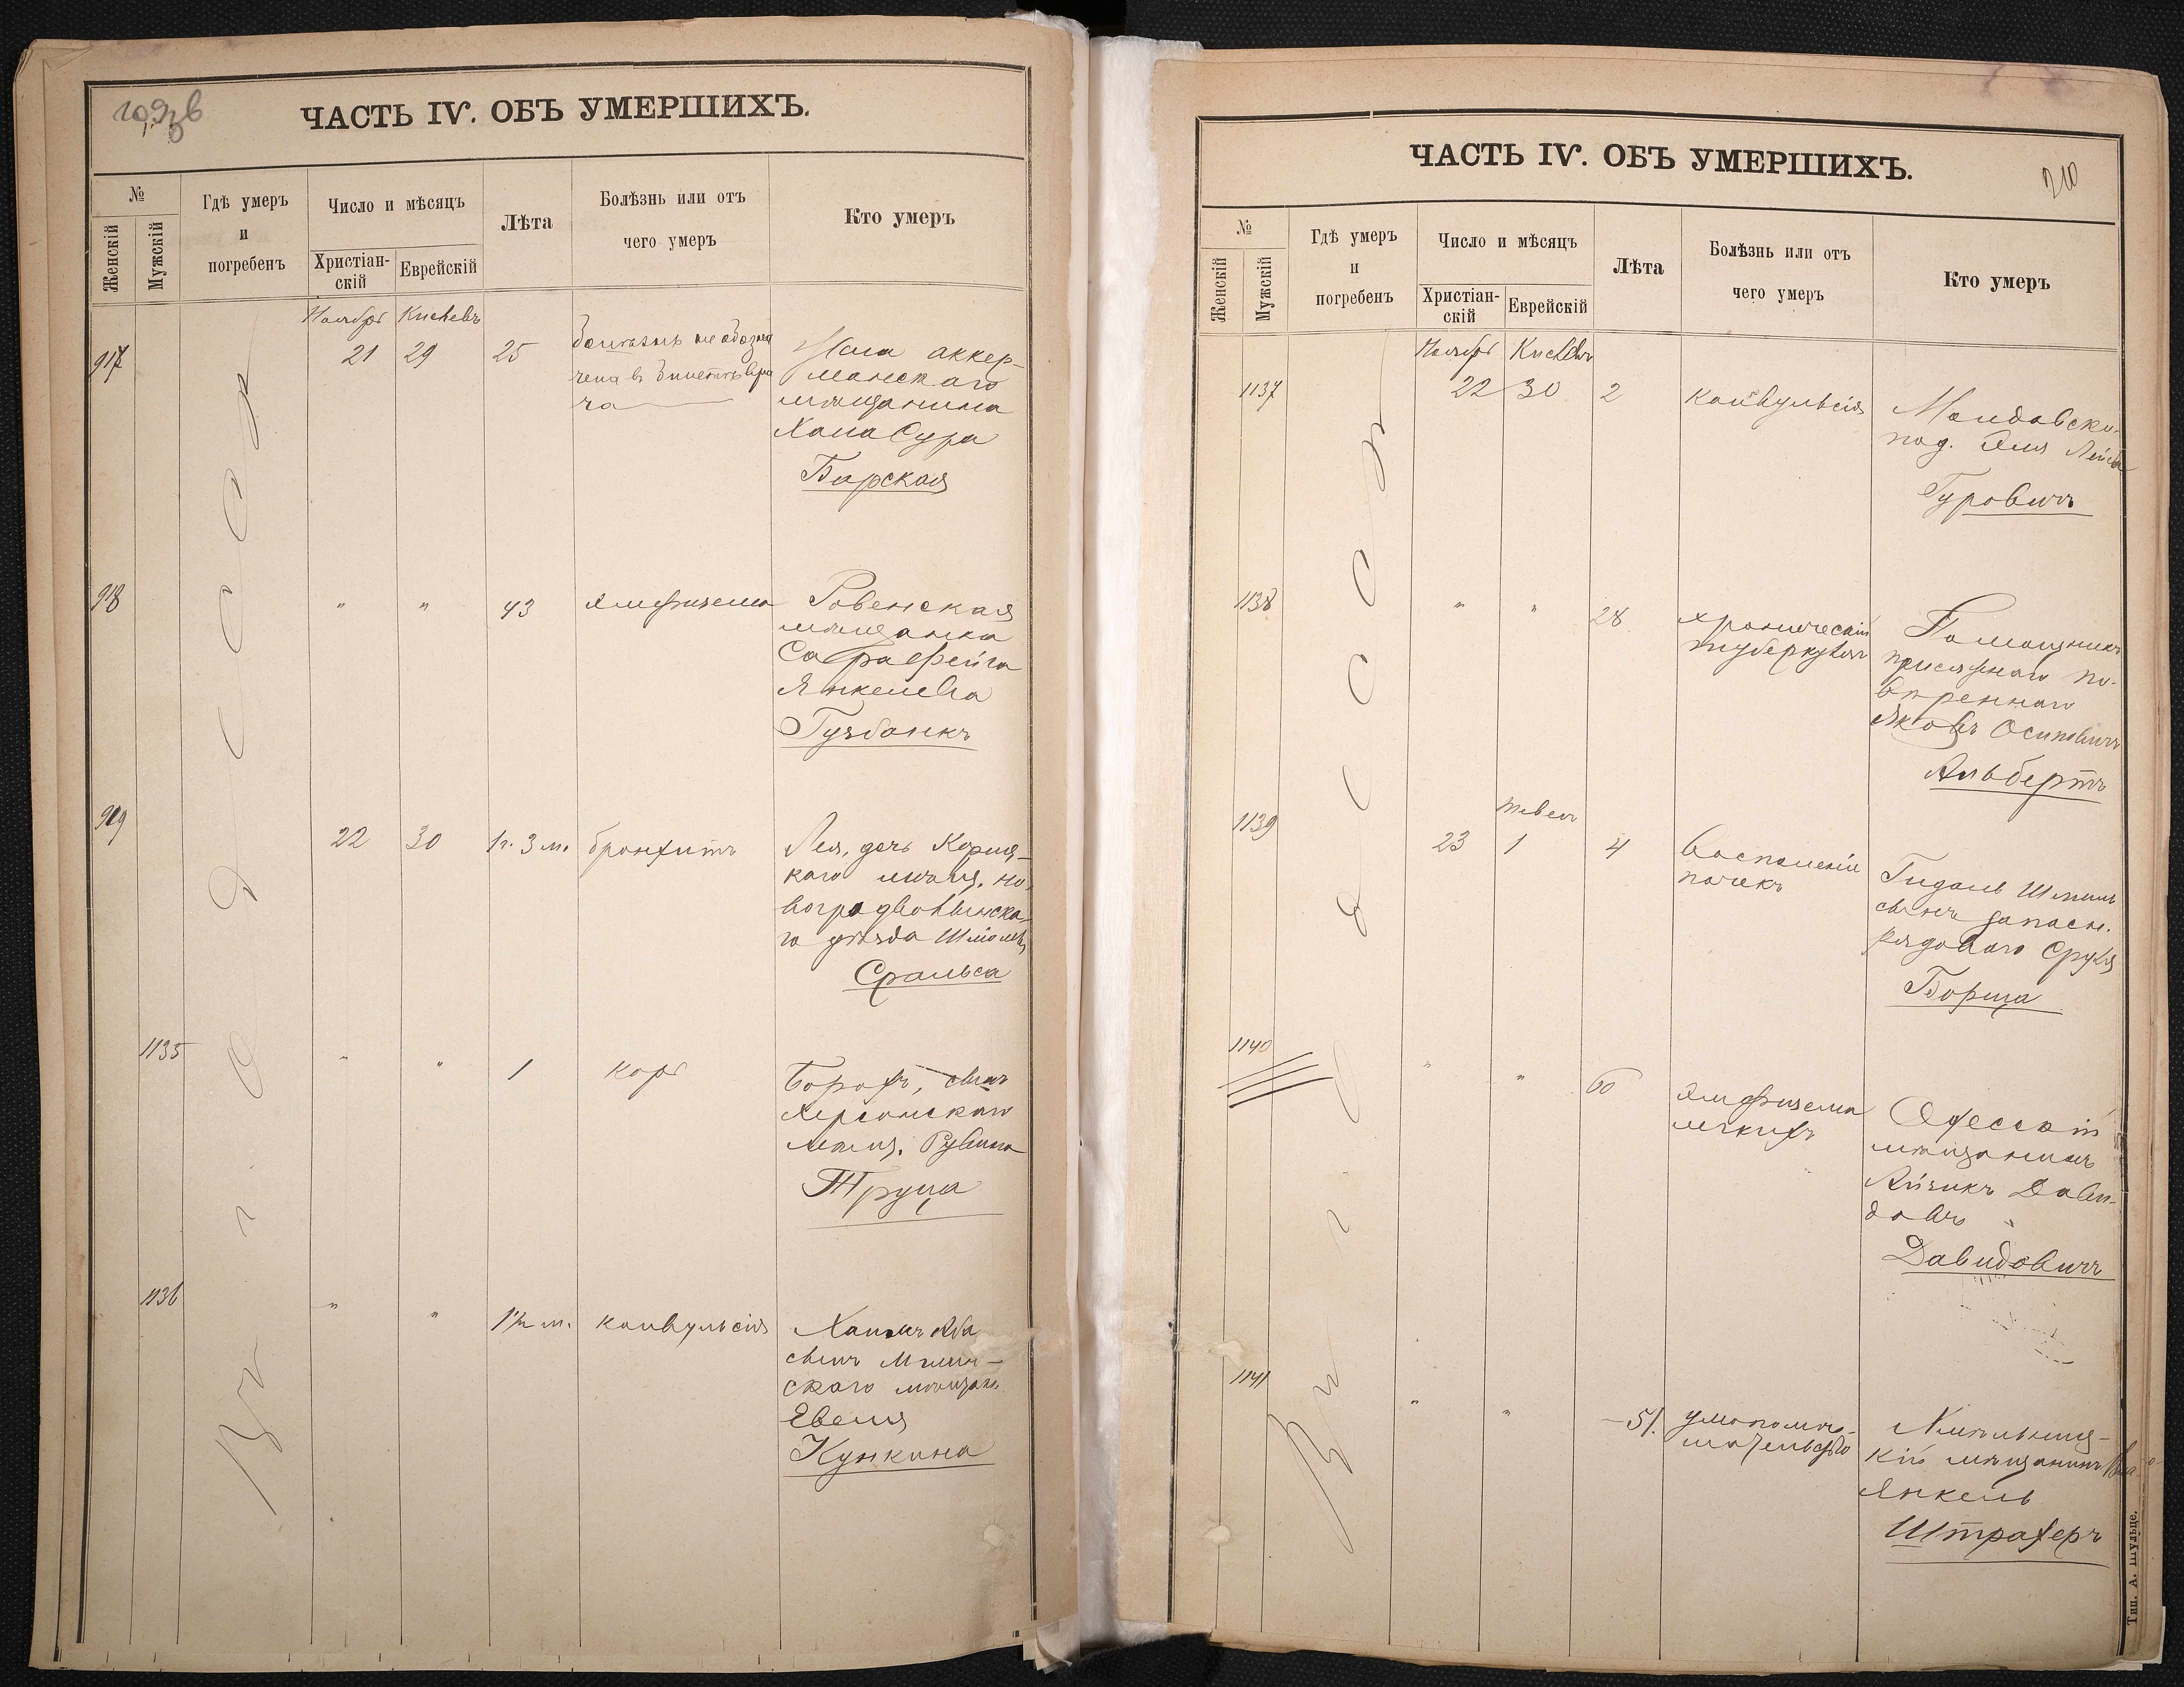 ЧАСТЬ IV. ОБЪ УМЕРШИХЪ.
№
Женскій
Мужскій
Гдѣ умеръ
и
погребенъ
Число и мѣсяцъ
Христіан-
скій
Еврейскій
Лѣта
Болѣзнь или отъ
чего умеръ
Кто умеръ
Въ г. Одессѣ
Ноябрь Кислевъ
917 21 29 25
болѣзнь не обозна
чена в билетѣ вра
ча
Жена аккер-
манскаго
мѣщанина
Хана Сура
Бирская
918 " " 43 Эмфизема
Ровенская
мѣщанка
Сара Фейга
Янкелева
Гузбанкъ
919 22 30 1 г. 3 м. бронхитъ
Лея, дочь Корец-
каго мѣщ. но-
воградволынска-
го уѣзда
Сральса
1135 " " 1 корь
Борохъ, сынъ
Херсонскаго
мѣщ. Рувина
Труца
1136 " " 1½ м. конвульсія
Аба
сынъ Мин-
скаго мѣщан.
Евеля
Кункина
ЧАСТЬ IV. ОБЪ УМЕРШИХЪ.
210
№
Женскій
Мужскій
Гдѣ умеръ
и
погребенъ
Число и мѣсяцъ
Христіан-
скій
Еврейскій
Лѣта
Болѣзнь или отъ
чего умеръ
Кто умеръ
Въ г. Одессѣ
Ноябрь Кислевъ
1137 22 30 2 конвульсія
Молдавско-
под. Эля Лейба
Гуровичъ
1138 " " 28
хроническій
туберкулезъ
Помощникъ
присяжнаго по-
вѣреннаго
Яковъ Осиповичъ
Альбертъ
Тевесъ
1139 23 1 4
Воспаленіе
почекъ
Гидаль Шмиль
сынъ запасн.
рядоваго Сруля
Борща
1140 " " 60
Эмфизема
легкихъ
Одесскій
мѣщанинъ
Айзикъ Дави-
довъ
Давидовичъ
1141 " " 51
умопомѣ-
шательство
Хмѣльниц-
кій мѣщанинъ
Янкель
Штрахеръ
Тип. А. Шульце.